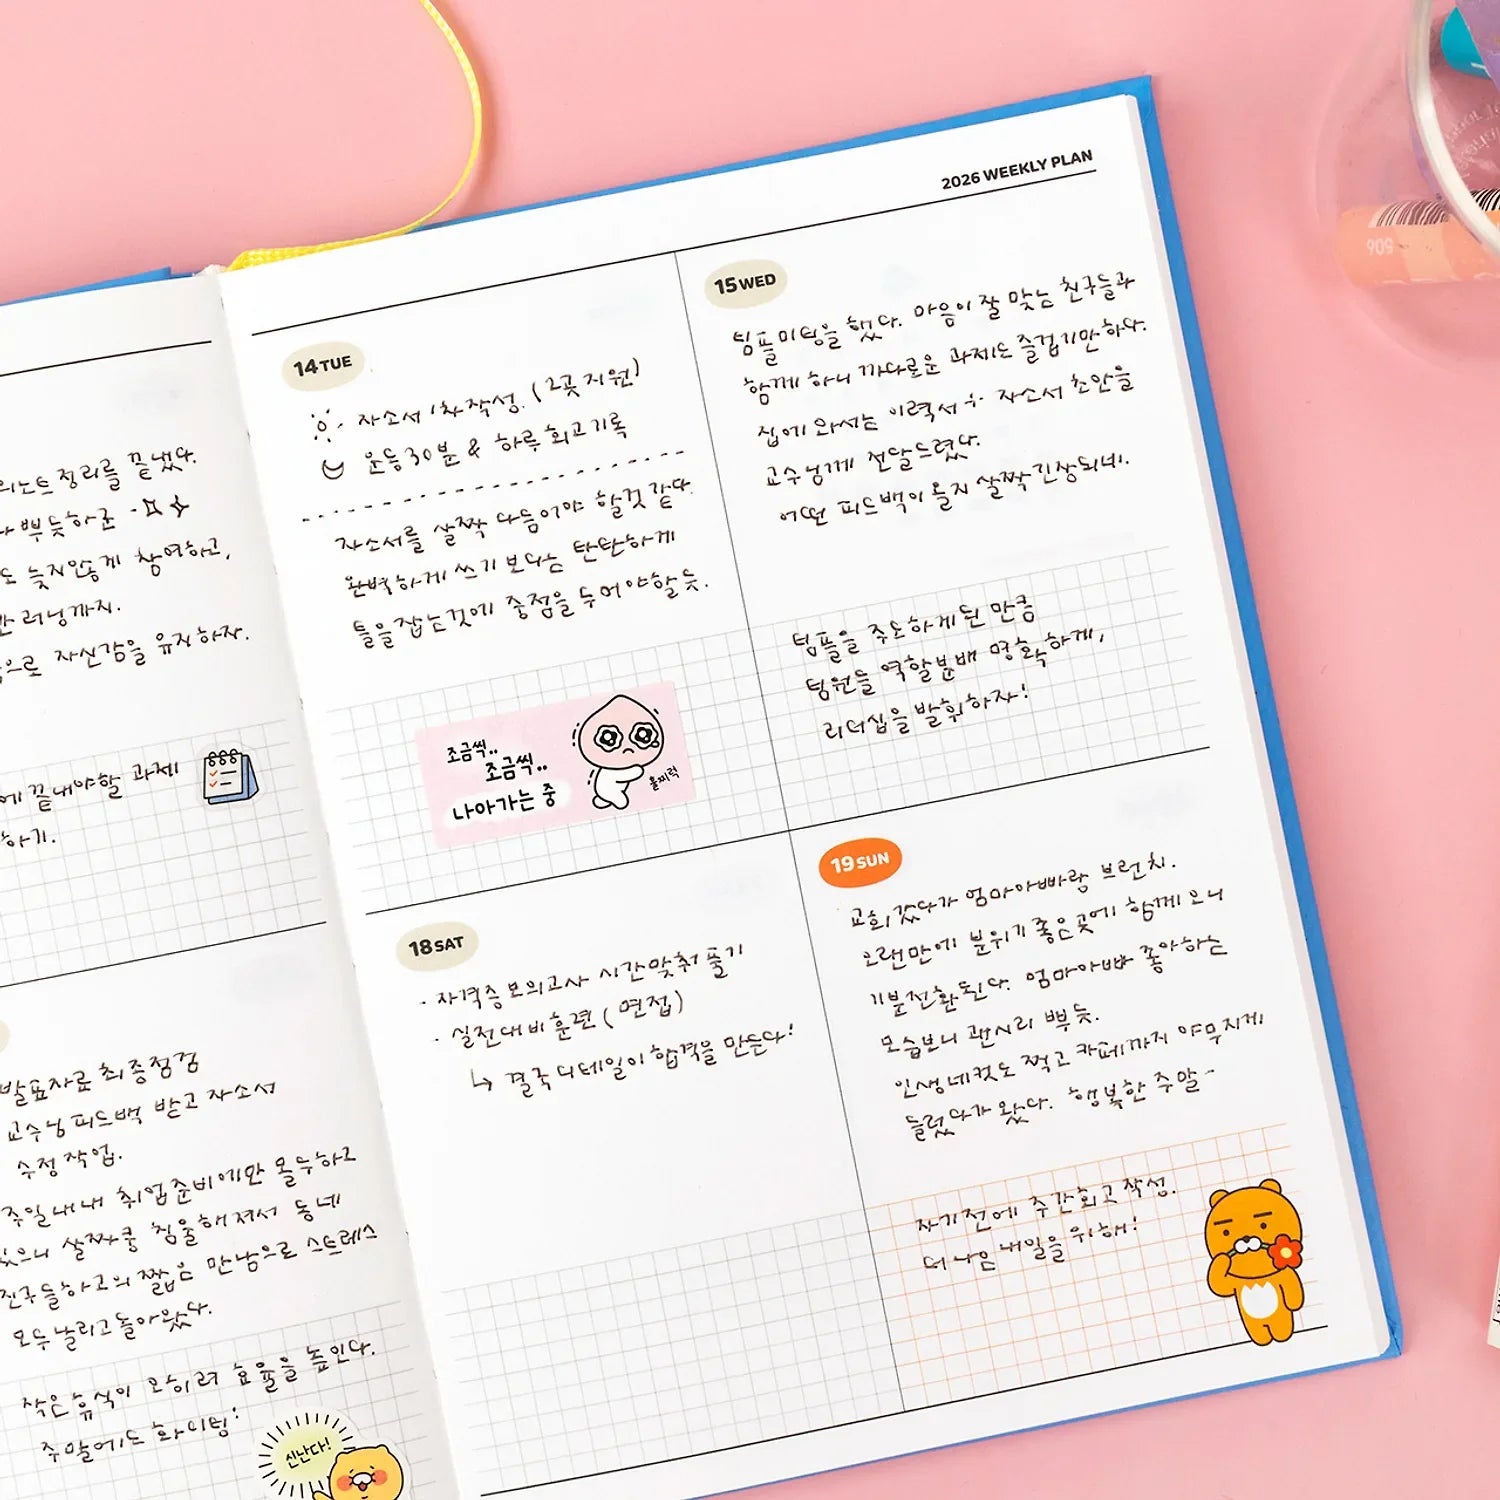 2026 WEEKLY PLAN
의노트 정리를 끝냈다.
뿌듯하군
도 늦지않게 참여하고,
러닝까지.
으로 자신감을 유지하자.
에 끝내야할 과제
하기.
발표자료 최종점검
교수님 피드백 받고 자소서
수정 작업.
주일내내 취업준비에만 몰두하고
있으니 살짝쿵 침울해져서 동네
친구들하고의 짧은 만남으로 스트레스
모두 날리고 돌아왔다.
작은 휴식이 오히려 효율을 높인다.
주말에도 화이팅!
신난다!
14 TUE
자소서 1차 작성. (2곳 지원)
운동 30분 & 하루 회고 기록
자소서를 살짝 다듬어야 할것 같다.
완벽하게 쓰기 보다는 탄탄하게
틀을 잡는것에 중점을 두어야할 듯.
조금씩..
조금씩..
나아가는 중
훌찌럭
15 WED
팀플 미팅을 했다. 마음이 잘 맞는 친구들과
함께 하니 까다로운 과제도 즐겁기만 하다.
집에 와서는 이력서 + 자소서 초안을
교수님께 전달드렸다.
어떤 피드백이 올지 살짝 긴장되네.
팀플을 주도하게 된 만큼
팀원들 역할분배 명확하게,
리더십을 발휘하자!
18 SAT
· 자격증 모의고사 시간 맞춰 풀기
· 실전 대비 훈련 (면접)
↳ 결국 디테일이 합격을 만든다!
19 SUN
교회 갔다가 엄마아빠랑 브런치.
오랜만에 분위기 좋은 곳에 함께 오니
기분전환된다. 엄마아빠 좋아하는
모습보니 괜시리 뿌듯.
인생네컷도 찍고 카페까지 야무지게
들렀다가 왔다. 행복한 주말~
자기 전에 주간회고 작성.
더 나은 내일을 위해!
906